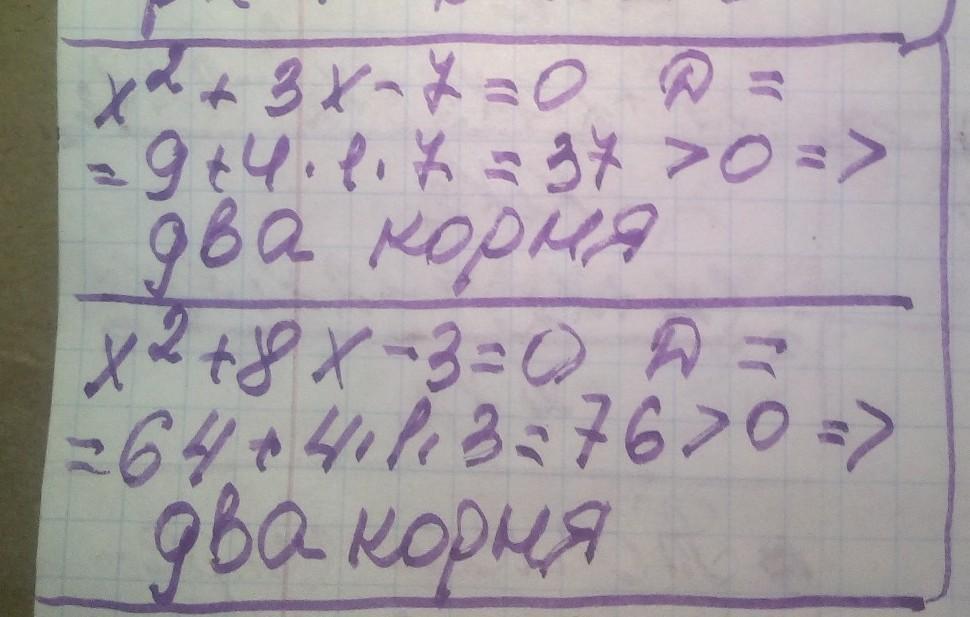 x² + 3x - 7 = 0 D =
= 9 + 4 · 1 · 7 = 37 > 0 =>
два корня
x² + 8x - 3 = 0 D =
= 64 + 4 · 1 · 3 = 76 > 0 =>
два корня